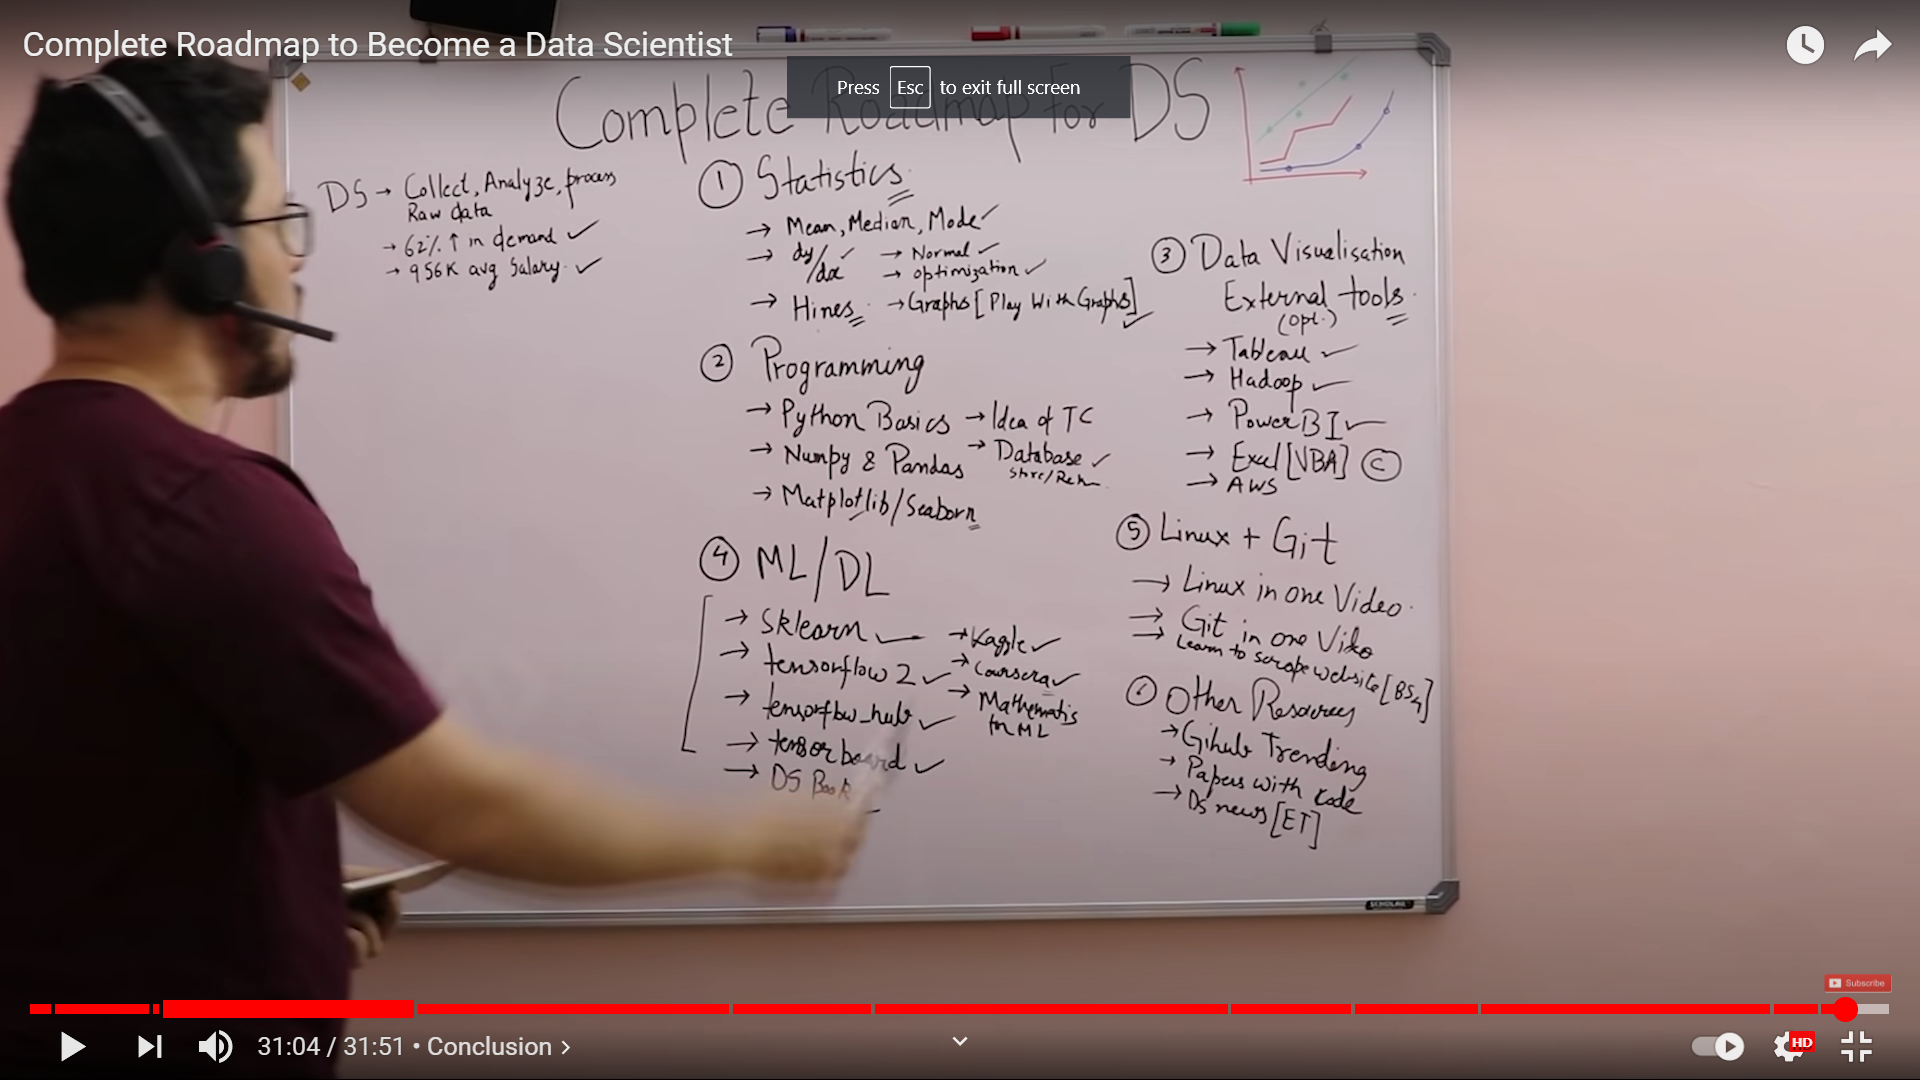 Complete Roadmap to Become a Data Scientist
Press Esc to exit full screen
Complete Roadmap for DS
DS → Collect, Analyze, process
Raw data
→ 62% ↑ in demand ✓
→ 956K avg Salary. ✓
① Statistics
→ Mean, Median, Mode ✓
→ dy/dx ✓ → Normal ✓
→ optimization ✓
→ Hines → Graphs [Play With Graphs] ✓
② Programming
→ Python Basics → Idea of TC
→ Numpy & Pandas → Database ✓
→ Matplotlib/Seaborn
③ Data Visualisation
External tools
(Opt.)
→ Tableau ✓
→ Hadoop ✓
→ Power BI ✓
→ Excel [VBA] ©
→ AWS
④ ML/DL
→ Sklearn ✓ → Kaggle ✓
→ tensorflow 2 ✓ → Coursera ✓
→ tensorflow_hub ✓ → Mathematics
for ML
→ tensorboard ✓
→ DS Book
⑤ Linux + Git
→ Linux in one Video.
→ Git in one Video
→ Learn to scrape website [BS4]
⑥ Other Resources
→ Gihub Trending
→ Papers with Code
→ Ds news [ET]
SCHOLAR
Subscribe
31:04 / 31:51 • Conclusion
HD